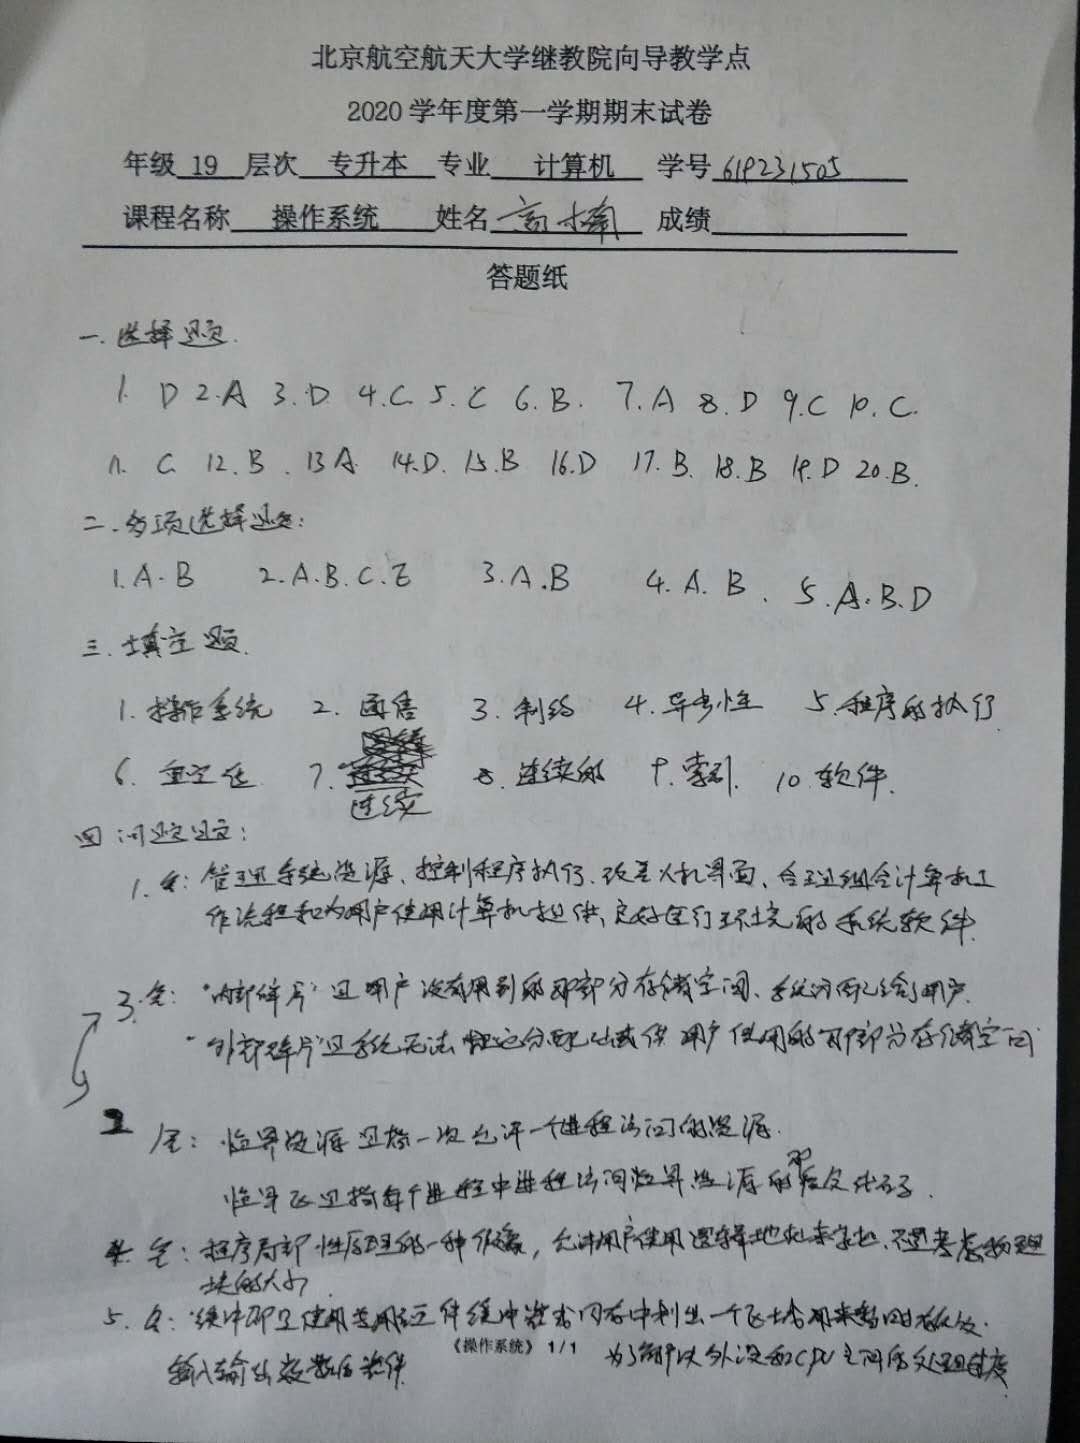 北京航空航天大学继教院向导教学点
2020 学年度第一学期期末试卷
年级 19 层次 专升本 专业 计算机 学号 619231505
课程名称 操作系统 姓名 高楠 成绩
答题纸
一. 选择题.
1. D 2.A 3.D 4.C 5.C 6.B. 7.A 8.D 9.C 10.C.
11. C 12.B. 13A 14.D. 15.B 16.D 17.B. 18.B 19.D 20.B.
二. 多项选择题:
1.A.B 2.A.B.C.E 3.A.B 4.A.B. 5.A.B.D
三. 填空题.
1. 操作系统 2. 3. 制约 4. 异步性 5. 程序的执行
6. 重定位 7.
连续 8. 连续的 9. 索引. 10 软件.
四 问答题:
1. 答: 管理系统资源、控制程序执行、改善人机界面、合理组合计算机工
作流程和为用户使用计算机提供良好运行环境的系统软件.
3. 答: "内部碎片" 是用户没有用到的那部分存储空间、系统分配给了用户.
"外部碎片"是系统无法 分配 供用户使用的那部分存储空间
2 答: 临界资源是指一次允许一个进程访问的资源.
临界区是指每个进程中进程访问临界资源的那段代码.
4. 答: 程序局部性原理的一种 , 允许用户使用逻辑地址 , 不遇考虑物理
块的大小
5. 答: 缓冲即是使用专用硬件缓冲器或内存中划出一个区域用来暂时存放
《操作系统》 1/1
输入输出数据 为了解决外设和CPU之间的处理速度